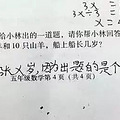 3x÷3=
x=
给小林出的一道题,请你帮小林回答
和10只山羊,船上船长几岁?
长x岁,因为出题的是个
五年级数学第4页(共4页)